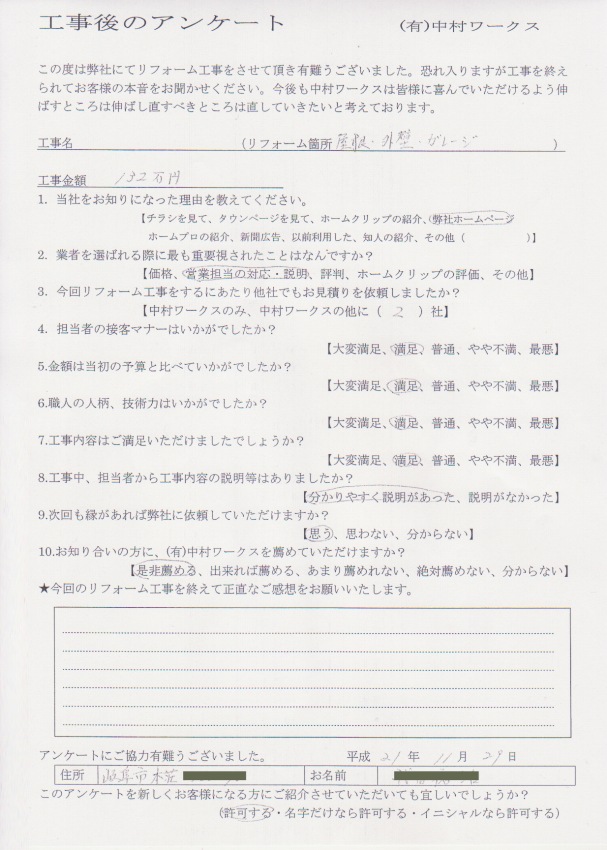 工事後のアンケート (有)中村ワークス
この度は弊社にてリフォーム工事をさせて頂き有難うございました。恐れ入りますが工事を終え
られてお客様の本音をお聞かせください。今後も中村ワークスは皆様に喜んでいただけるよう伸
ばすところは伸ばし直すべきところは直していきたいと考えております。
工事名 (リフォーム箇所 屋根・外壁・ガレージ )
工事金額 132万円
1. 当社をお知りになった理由を教えてください。
【チラシを見て、タウンページを見て、ホームクリップの紹介、弊社ホームページ
ホームプロの紹介、新聞広告、以前利用した、知人の紹介、その他( )】
2. 業者を選ばれる際に最も重要視されたことはなんですか?
【価格、営業担当の対応・説明、評判、ホームクリップの評価、その他】
3. 今回リフォーム工事をするにあたり他社でもお見積りを依頼しましたか?
【中村ワークスのみ、中村ワークスの他に( 2 )社】
4. 担当者の接客マナーはいかがでしたか?
【大変満足、満足、普通、やや不満、最悪】
5.金額は当初の予算と比べていかがでしたか?
【大変満足、満足、普通、やや不満、最悪】
6.職人の人柄、技術力はいかがでしたか?
【大変満足、満足、普通、やや不満、最悪】
7.工事内容はご満足いただけましたでしょうか?
【大変満足、満足、普通、やや不満、最悪】
8.工事中、担当者から工事内容の説明等はありましたか?
【分かりやすく説明があった、説明がなかった】
9.次回も縁があれば弊社に依頼していただけますか?
【思う、思わない、分からない】
10.お知り合いの方に、(有)中村ワークスを薦めていただけますか?
【是非薦める、出来れば薦める、あまり薦めれない、絶対薦めない、分からない】
★今回のリフォーム工事を終えて正直なご感想をお願いいたします。
アンケートにご協力有難うございました。 平成 21 年 11 月 29 日
住所 岐阜市 お名前
このアンケートを新しくお客様になる方にご紹介させていただいても宜しいでしょうか?
(許可する・名字だけなら許可する・イニシャルなら許可する)